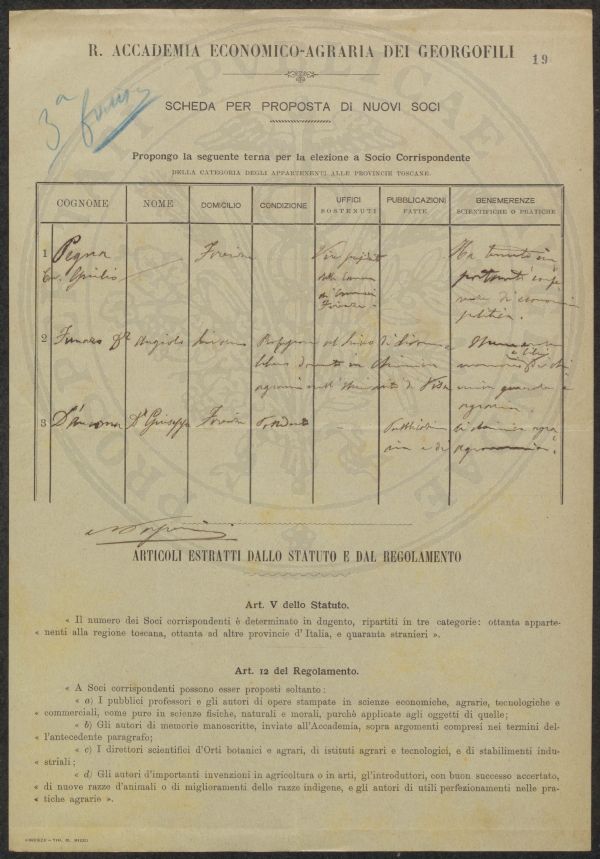 R. ACCADEMIA ECONOMICO-AGRARIA DEI GEORGOFILI
19
3ª
SCHEDA PER PROPOSTA DI NUOVI SOCI
Propongo la seguente terna per la elezione a Socio Corrispondente
DELLA CATEGORIA DEGLI APPARTENENTI ALLE PROVINCIE TOSCANE.
COGNOME NOME DOMICILIO CONDIZIONE UFFICI SOSTENUTI PUBBLICAZIONI FATTE BENEMERENZE SCIENTIFICHE O PRATICHE
1 Pegna Firenze Vice Ha tenuto
Cav. Giulio della Camera
di Firenze di economia
politica.
2 Dr Angiolo Livorno Professore
in Chimica
agraria Pisa
agraria.
3 D'Ancona Dr Giuseppe Firenze Possidente Pubblicazioni
ARTICOLI ESTRATTI DALLO STATUTO E DAL REGOLAMENTO
Art. V dello Statuto.
« Il numero dei Soci corrispondenti è determinato in dugento, ripartiti in tre categorie: ottanta apparte-
« nenti alla regione toscana, ottanta ad altre provincie d' Italia, e quaranta stranieri ».
Art. 12 del Regolamento.
« A Soci corrispondenti possono esser proposti soltanto:
« a) I pubblici professori e gli autori di opere stampate in scienze economiche, agrarie, tecnologiche e
« commerciali, come pure in scienze fisiche, naturali e morali, purchè applicate agli oggetti di quelle;
« b) Gli autori di memorie manoscritte, inviate all'Accademia, sopra argomenti compresi nei termini del-
« l'antecedente paragrafo;
« c) I direttori scientifici d'Orti botanici e agrari, di istituti agrari e tecnologici, e di stabilimenti indu-
« striali;
« d) Gli autori d'importanti invenzioni in agricoltura o in arti, gl'introduttori, con buon successo accertato,
« di nuove razze d'animali o di miglioramenti delle razze indigene, e gli autori di utili perfezionamenti nelle pra-
« tiche agrarie ».
FIRENZE - TIP. M. RICCI